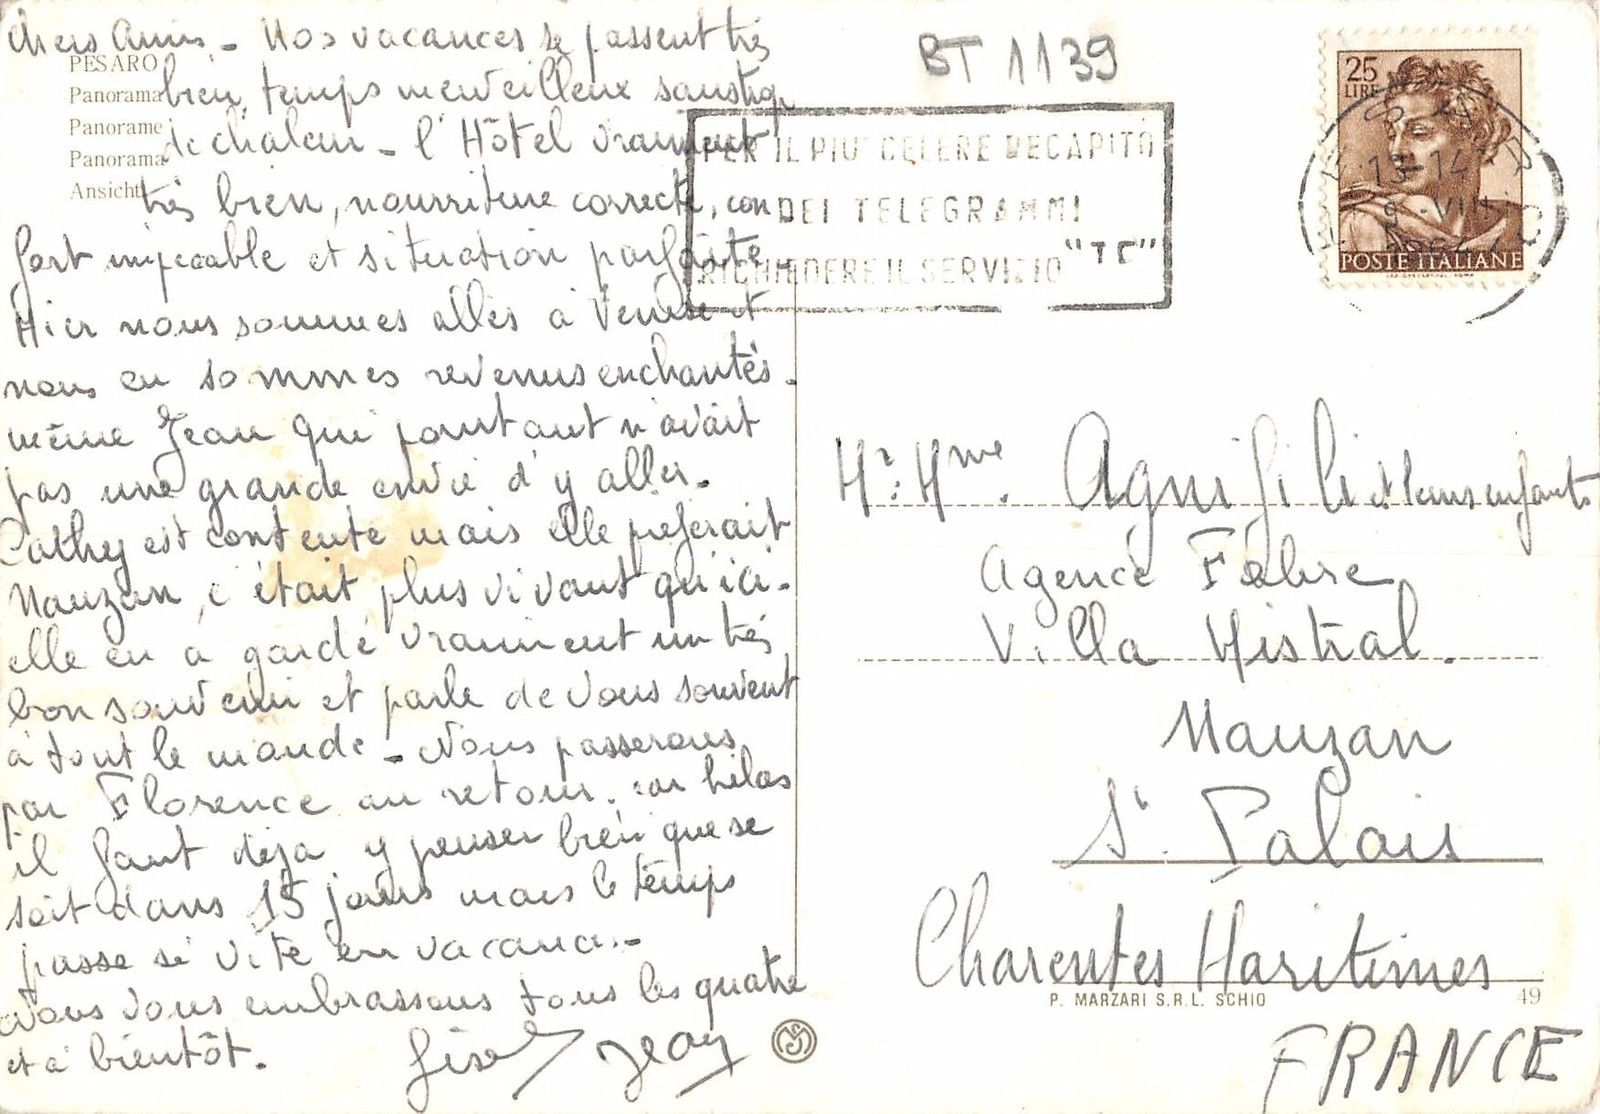 Chers Amis - Nos vacances se passent très
bien, temps merveilleux sans trop
de chaleur - l'Hôtel vraiment
très bien, nourriture correcte, con
fort impecable et situation parfaite -
Hier nous sommes allés à Venise et
nous en sommes revenus enchantés -
même Jean qui pourtant n'avait
pas une grande envie d'y aller.
Cathy est contente mais elle préferait
Nauzan, c'était plus vivant qu'ici -
elle en a gardé vraiment un très
bon souvenir et parle de vous souvent
à tout le monde - Nous passerons
par Florence au retour. car hélas
il faut déja y penser bien que se
soit dans 15 jours mais le temps
passe si vite en vacances -
Nous vous embrassons tous les quatre
et à bientôt.
Jean
PESARO
Panorama
Panorame
Panorama
Ansicht
BT 1139
PER IL PIU' CELERE RECAPITO
DEI TELEGRAMMI
RICHIEDERE IL SERVIZIO "TC"
25
LIRE
POSTE ITALIANE
PESARO
13-14
9.VIII
Mr. Mme. Agnifili et leurs enfants
Agence Fabre
Villa Mistral.
Nauzan
St. Palais
Charentes Maritimes
FRANCE
P. MARZARI S.R.L. SCHIO
49